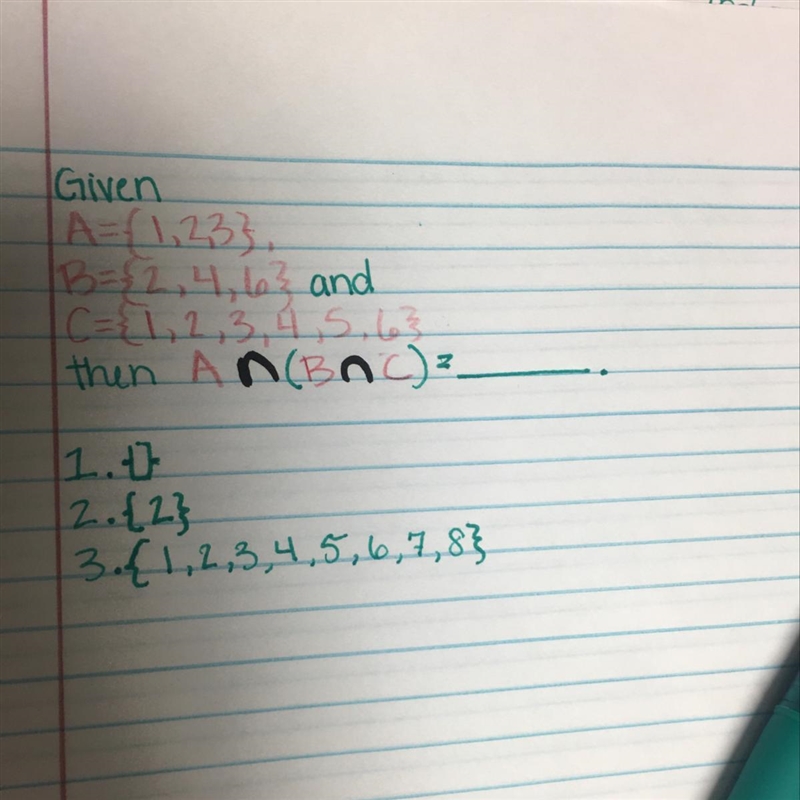 Given
A={1,2,3},
B={2,4,6} and
C={1,2,3,4,5,6}
then A ∩ (B ∩ C) = ______.
1. {}
2. {2}
3. {1,2,3,4,5,6,7,8}